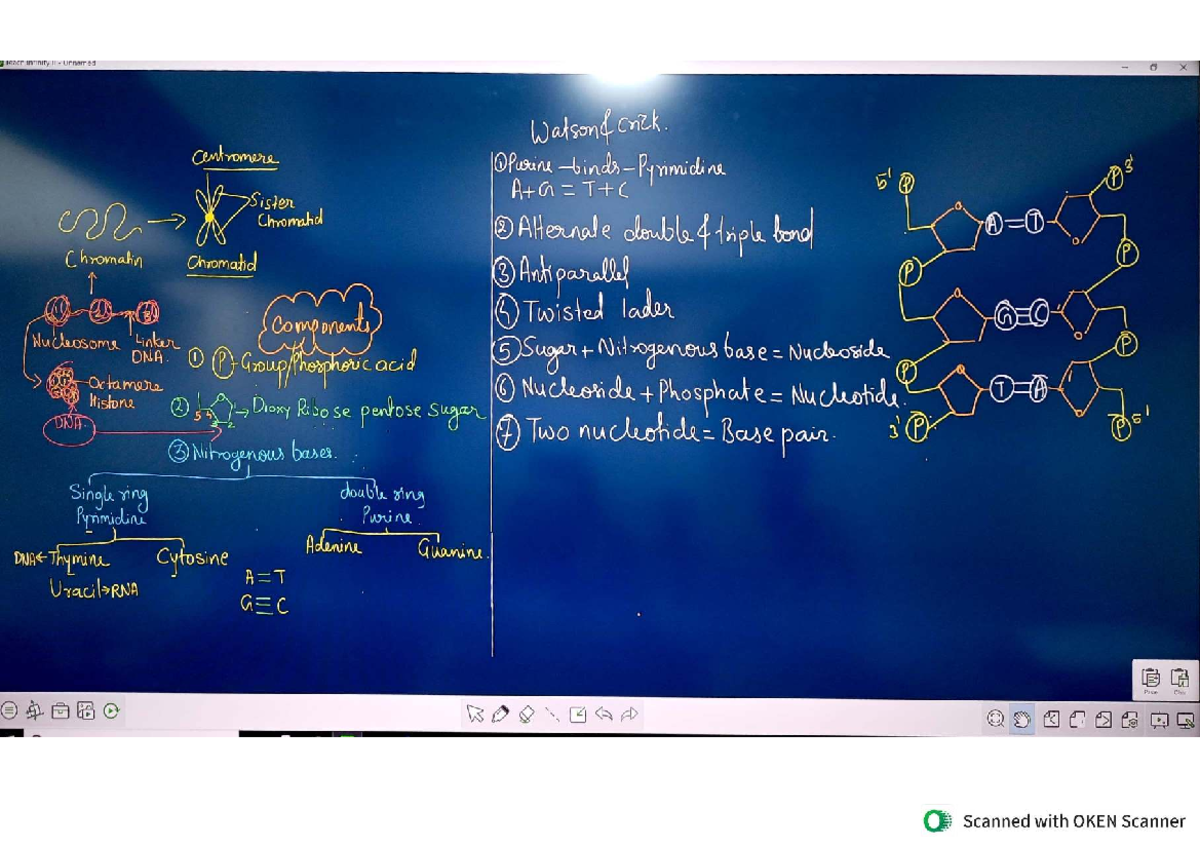 Centromere
Sister
Chromatid
Chromatin
Chromatid
Nucleosome
Linker
DNA.
Octamere
Histone
DNA
Components
① P-Group/Phosphoric acid
② Dioxy Ribose pentose sugar
③ Nitrogenous bases.
Single ring
Pyrimidine
double ring
Purine
DNA← Thymine
Cytosine
Uracil→RNA
Adenine
Guanine.
A=T
G≡C
Watson & Crick.
① Purine -binds- Pyrimidine
A+G = T+C
② Alternate double & triple bond
③ Antiparallel
④ Twisted lader
⑤ Sugar + Nitrogenous base = Nucleoside
⑥ Nucleoside + Phosphate = Nucleotide.
⑦ Two nucleotide = Base pair.
5' P
P 3'
A=T
P
P
G≡C
P
P
T=A
3' P
P 5'
Scanned with OKEN Scanner